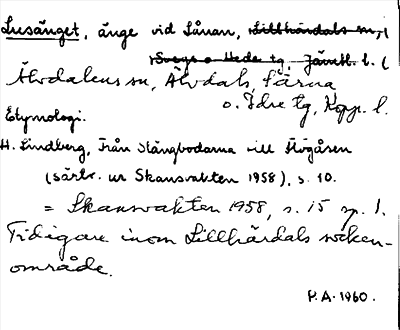 Lusänget, änge vid Lånan, Lillhärdals sn,
Svegs o Hede tg, Jämtl. l.
Älvdalens sn, Älvdals, Särna
o. Idre tg, Kopp. l.
Etymologi.
H. Lindberg, Från Slängbodarna till Högåsen
(särtr. ur Skansvakten 1958), s. 10.
= Skansvakten 1958, s. 15 sp. 1.
Tidigare inom Lillhärdals socken-
område.
P.A. 1960.